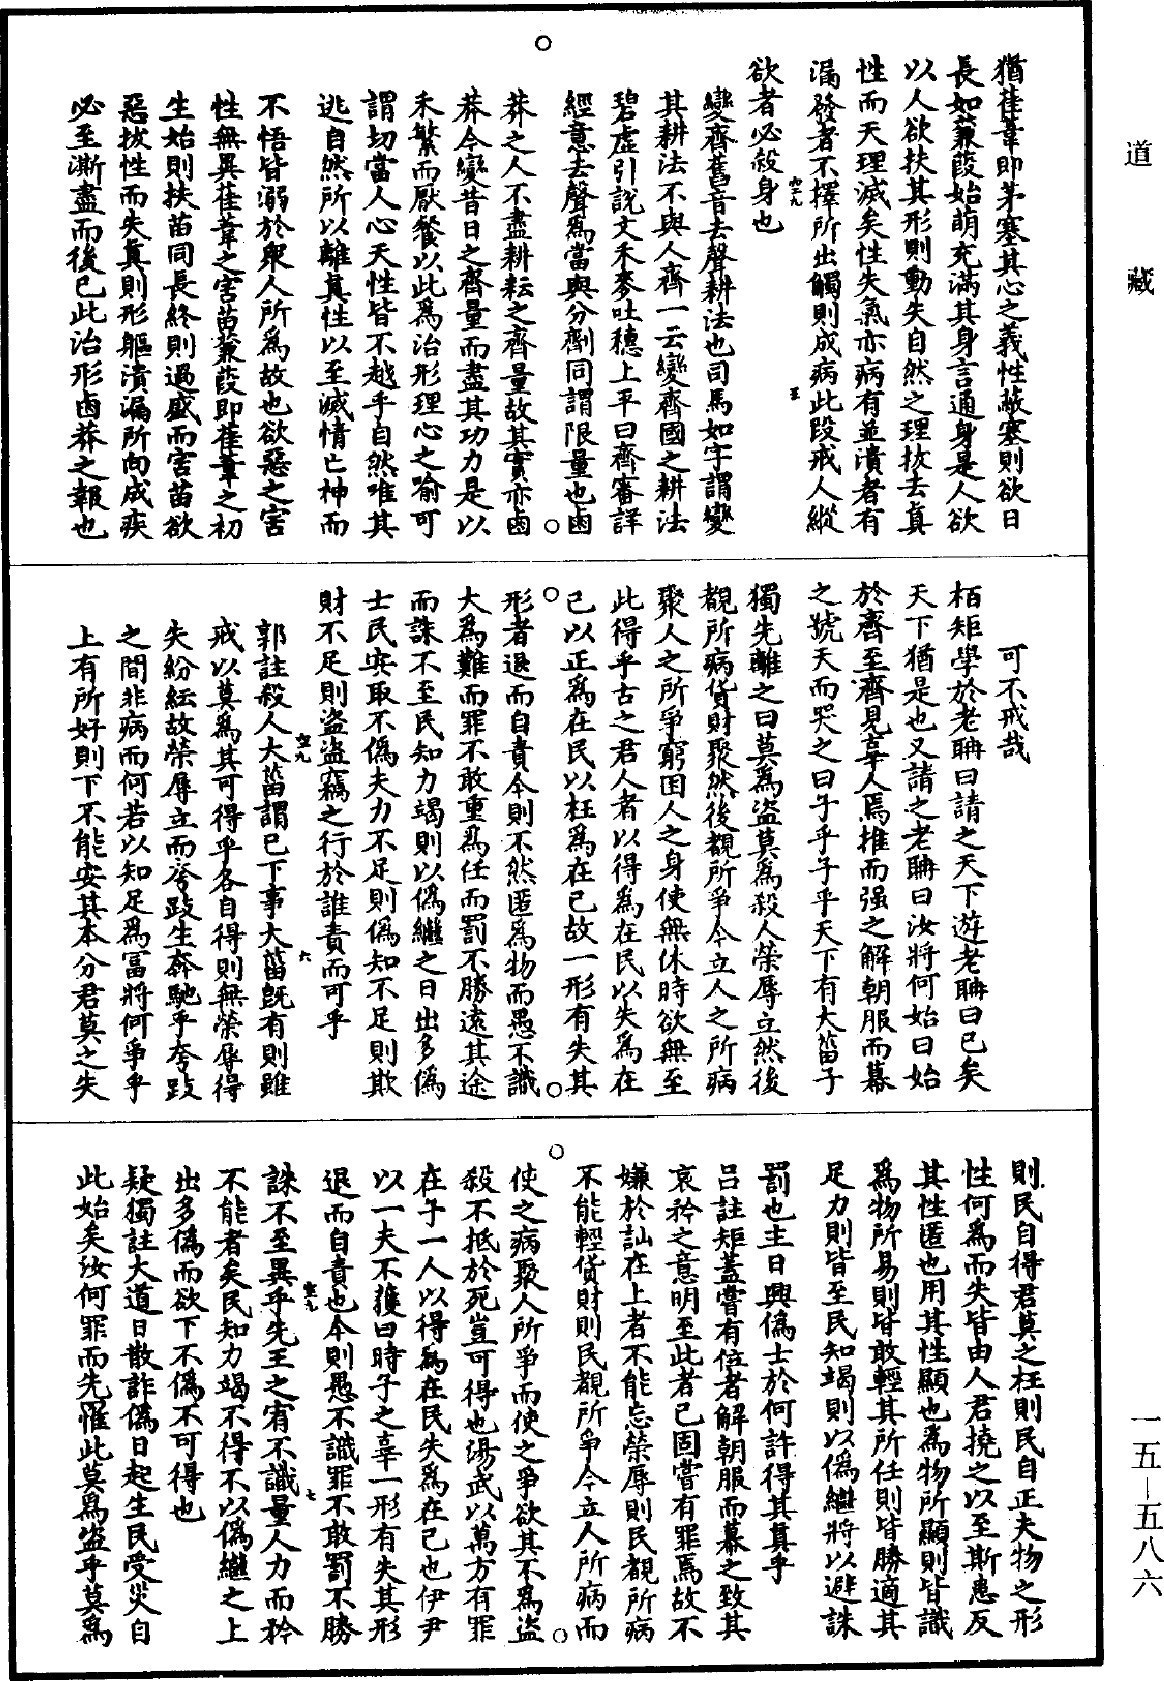 道藏
猶萑葦即茅塞其心之義性蔽塞則欲日
長如蒹葭始萌充滿其身言通身是人欲
以人欲扶其形則動失自然之理拔去真
性而天理滅矣性失氣亦病有並潰者有
漏發者不擇所出觸則成病此段戒人縱
欲者必殺身也
變齊舊音去聲耕法也司馬如字謂變
其耕法不與人齊一云變齊國之耕法
碧虛引說文禾麥吐穗上平曰齊審詳
經意去聲為當與分劑同謂限量也鹵
莽之人不盡耕耘之齊量故其實亦鹵
莽今變昔日之齊量而盡其功力是以
禾繁而厭餐以此為治形理心之喻可
謂切當人心天性皆不越乎自然唯其
逃自然所以離真性以至滅情亡神而
不悟皆溺於眾人所為故也欲惡之害
性無異萑葦之害苗蒹葭即萑葦之初
生始則扶苗同長終則過盛而害苗欲
惡拔性而失真則形軀潰漏所向成疾
必至澌盡而後已此治形鹵莽之報也
可不戒哉
栢矩學於老聃曰請之天下遊老聃曰已矣
天下猶是也又請之老聃曰汝將何始曰始
於齊至齊見辜人焉推而强之解朝服而幕
之號天而哭之曰子乎子乎天下有大菑子
獨先離之曰莫為盜莫為殺人榮辱立然後
覩所病貨財聚然後覩所爭今立人之所病
聚人之所爭窮困人之身使無休時欲無至
此得乎古之君人者以得為在民以失為在
己以正為在民以枉為在己故一形有失其
形者退而自責今則不然匿為物而愚不識
大為難而罪不敢重為任而罰不勝遠其途
而誅不至民知力竭則以偽繼之日出多偽
士民安取不偽夫力不足則偽知不足則欺
財不足則盜盜竊之行於誰責而可乎
郭註殺人大菑謂已下事大菑既有則雖
戒以莫為其可得乎各自得則無榮辱得
失紛紜故榮辱立而夸跂生奔馳乎夸跂
之間非病而何若以知足為富將何爭乎
上有所好則下不能安其本分君莫之失
則民自得君莫之枉則民自正夫物之形
性何為而失皆由人君撓之以至斯患反
其性匿也用其性顯也為物所顯則皆識
為物所易則皆敢輕其所任則皆勝適其
足力則皆至民知竭則以偽繼將以避誅
罰也主日興偽士於何許得其真乎
呂註矩蓋嘗有位者解朝服而幕之致其
哀矜之意明至此者己固嘗有罪焉故不
嫌於訕在上者不能忘榮辱則民覩所病
不能輕貨財則民覩所爭今立人所病而
使之病聚人所爭而使之爭欲其不為盜
殺不抵於死豈可得也湯武以萬方有罪
在予一人以得為在民失為在己也伊尹
以一夫不獲曰時予之辜一形有失其形
退而自責也今則愚不識罪不敢罰不勝
誅不至異乎先王之宥不識量人力而矜
不能者矣民知力竭不得不以偽繼之上
出多偽而欲下不偽不可得也
疑獨註大道日散詐偽日起生民受災自
此始矣汝何罪而先罹此莫為盜乎莫為
一五—五八六